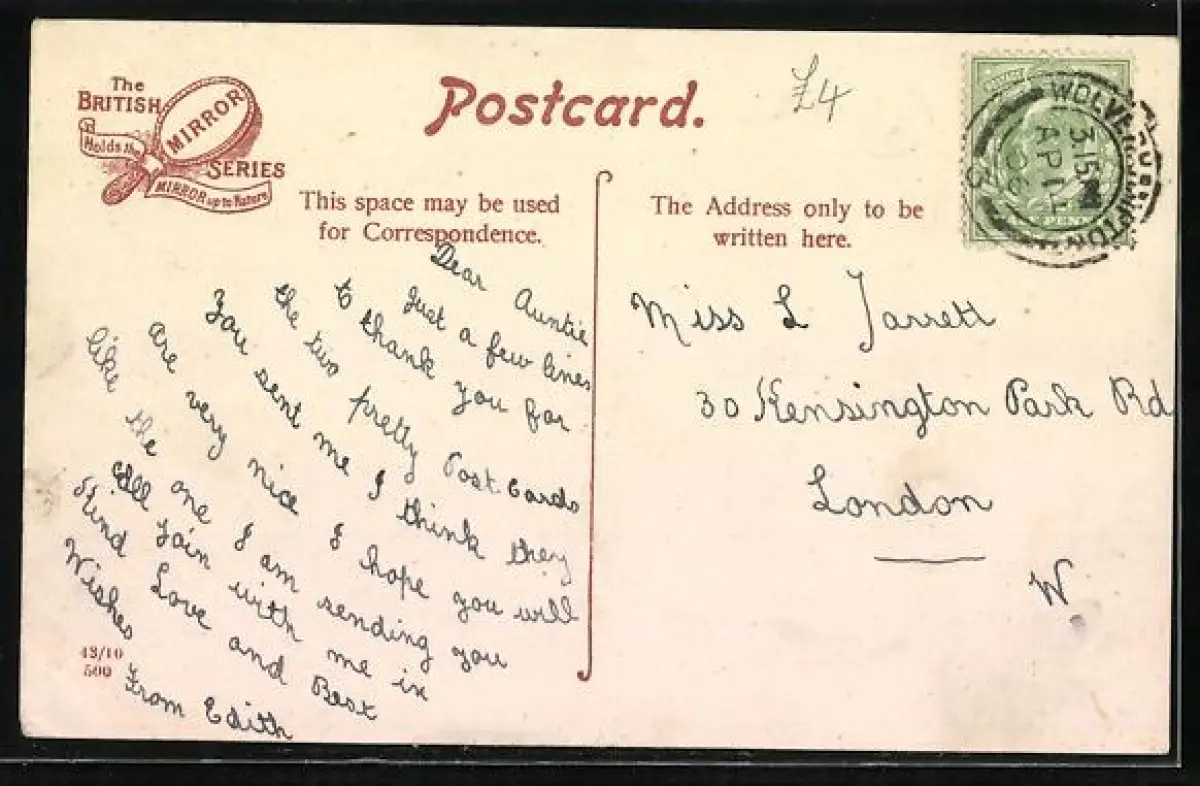 The
BRITISH
Holds the
MIRROR
SERIES
MIRROR up to Nature
Postcard.
£4
WOLVERHAMPTON
3.15
AP 14
06
3
This space may be used
for Correspondence.
The Address only to be
written here.
Dear Auntie
Just a few lines
to thank you for
the two pretty Post Cards
You sent me I think they
are very nice I hope you will
like the one I am sending you
All Join with me in
Kind Love and Best
Wishes
From Edith
43/10
500
Miss L Jarrett
30 Kensington Park Rd
London
W.